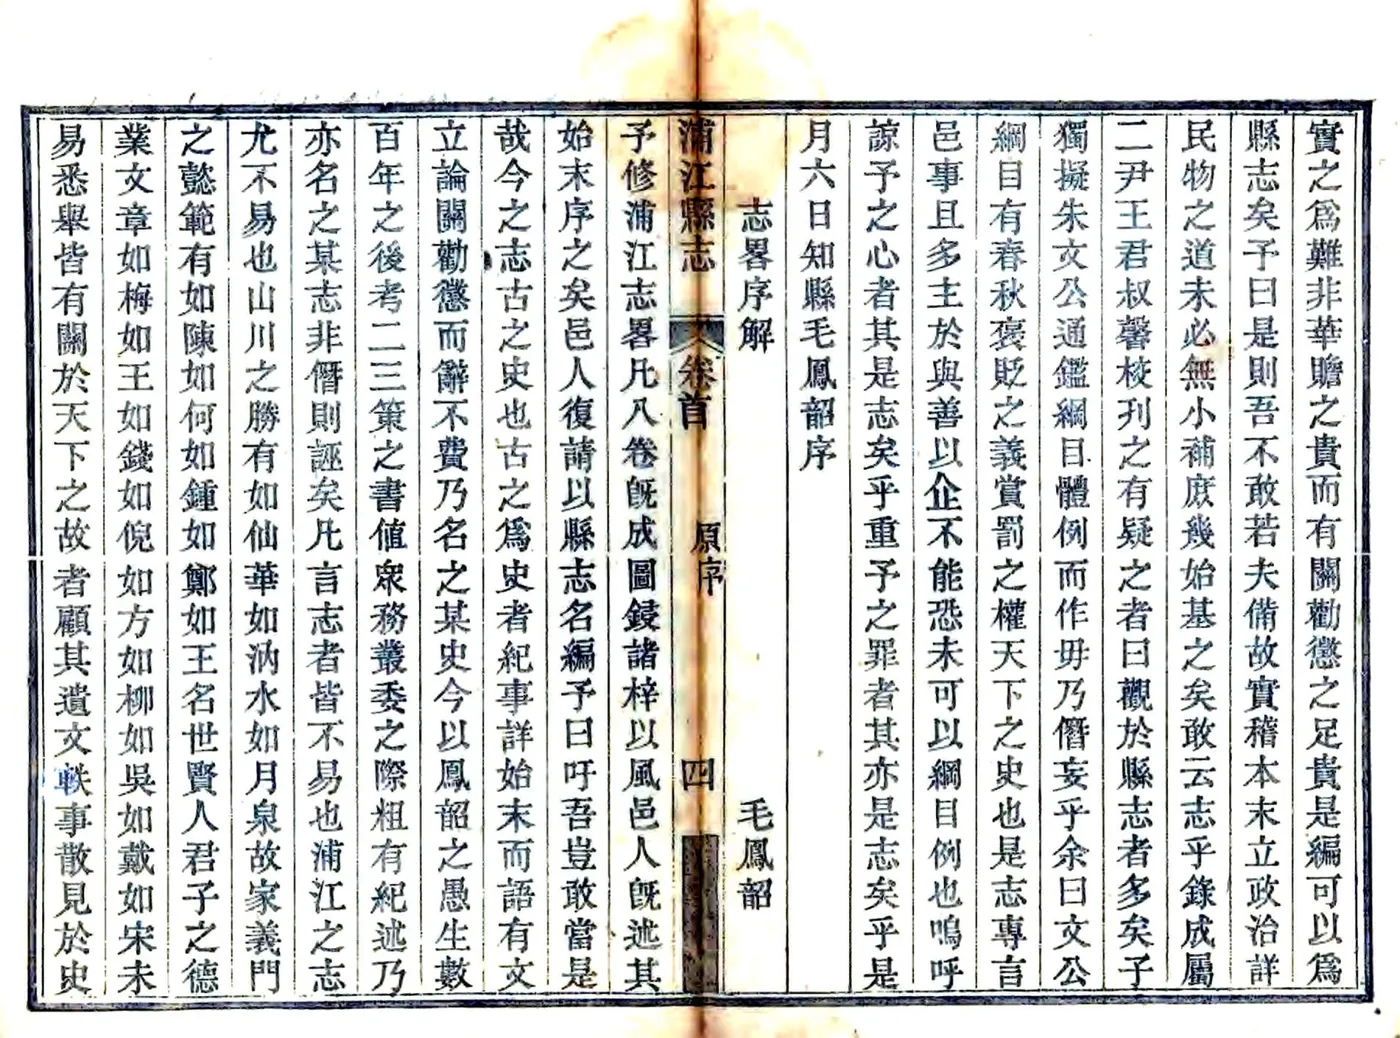 實之爲難非華贍之貴而有關勸懲之足貴是編可以爲
縣志矣予曰是則吾不敢若夫備故實稽本末立政治詳
民物之道未必無小補庶幾始基之矣敢云志乎錄成屬
二尹王君叔馨校刋之有疑之者曰觀於縣志者多矣子
獨擬朱文公通鑑綱目體例而作毋乃僭妄乎余曰文公
綱目有春秋褒貶之義賞罰之權天下之史也是志專言
邑事且多主於與善以企不能恐未可以綱目例也嗚呼
諒予之心者其是志矣乎重予之罪者其亦是志矣乎是
月六日知縣毛鳳韶序
志畧序解 毛鳳韶
浦江縣志 卷首 原序 四
予修浦江志畧凡八卷旣成圖鋟諸梓以風邑人旣述其
始末序之矣邑人復請以縣志名編予曰吁吾豈敢當是
哉今之志古之史也古之爲史者紀事詳始末而語有文
立論關勸懲而辭不費乃名之某史今以鳳韶之愚生數
百年之後考二三策之書値衆務叢委之際粗有紀述乃
亦名之某志非僭則誣矣凡言志者皆不易也浦江之志
尤不易也山川之勝有如仙華如汭水如月泉故家義門
之懿範有如陳如何如鍾如鄭如王名世賢人君子之德
業文章如梅如王如錢如倪如方如柳如吳如戴如宋未
易悉舉皆有關於天下之故者顧其遺文軼事散見於史